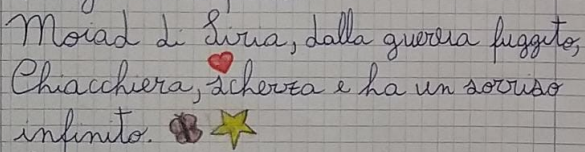 Moiad di Siria, dalla guerra fuggito,
Chiacchiera, scherza e ha un sorriso
infinito.